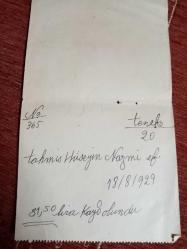 No
365
teneke
20
tahmis Hüseyin Nazmi ef.
18/8/929
81,50 lira Kaydolundu